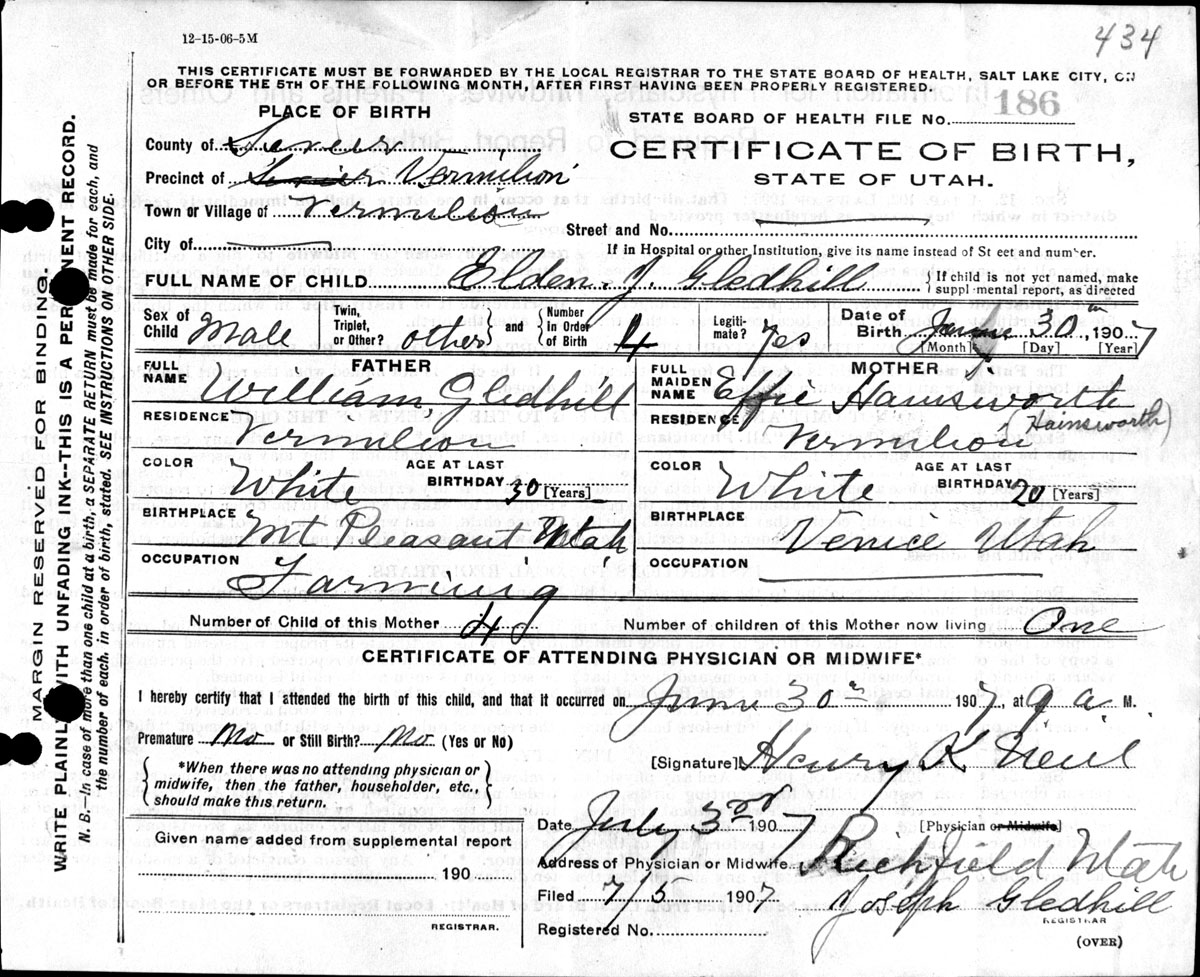 434
12-15-06-5M
THIS CERTIFICATE MUST BE FORWARDED BY THE LOCAL REGISTRAR TO THE STATE BOARD OF HEALTH, SALT LAKE CITY, ON
OR BEFORE THE 5TH OF THE FOLLOWING MONTH, AFTER FIRST HAVING BEEN PROPERLY REGISTERED.
PLACE OF BIRTH
STATE BOARD OF HEALTH FILE No. 186
County of Sevier
CERTIFICATE OF BIRTH,
STATE OF UTAH.
Precinct of Vermilion
Town or Village of Vermilion
Street and No.
City of
If in Hospital or other Institution, give its name instead of St eet and number.
FULL NAME OF CHILD Elden J. Gledhill
If child is not yet named, make suppl mental report, as directed
Sex of Child Male
Twin, Triplet, or Other? other and Number in Order of Birth 4
Legitimate? Yes
Date of Birth June 30th, 1907
[Month] [Day] [Year]
FATHER
FULL NAME William Gledhill
RESIDENCE Vermilion
COLOR White
AGE AT LAST BIRTHDAY 30 [Years]
BIRTHPLACE Mt Pleasant Utah
OCCUPATION Farming
MOTHER
FULL MAIDEN NAME Effie Hainsworth
(Hainsworth)
RESIDENCE Vermilion
COLOR White
AGE AT LAST BIRTHDAY 20 [Years]
BIRTHPLACE Venice Utah
OCCUPATION
Number of Child of this Mother 4
Number of children of this Mother now living One
CERTIFICATE OF ATTENDING PHYSICIAN OR MIDWIFE*
I hereby certify that I attended the birth of this child, and that it occurred on June 30th 1907, at 9 a. M.
Premature No or Still Birth? No (Yes or No)
*When there was no attending physician or
midwife, then the father, householder, etc.,
should make this return.
[Signature] Henry K Neill
Date July 3rd 1907
[Physician or Midwife]
Given name added from supplemental report
190
REGISTRAR.
Address of Physician or Midwife Richfield Utah
Filed 7/5 1907 Joseph Gledhill
REGISTRAR
Registered No.
(OVER)
MARGIN RESERVED FOR BINDING.
WRITE PLAINLY WITH UNFADING INK--THIS IS A PERMANENT RECORD.
N. B.--In case of more than one child at a birth, a SEPARATE RETURN must be made for each, and
the number of each, in order of birth, stated. SEE INSTRUCTIONS ON OTHER SIDE.